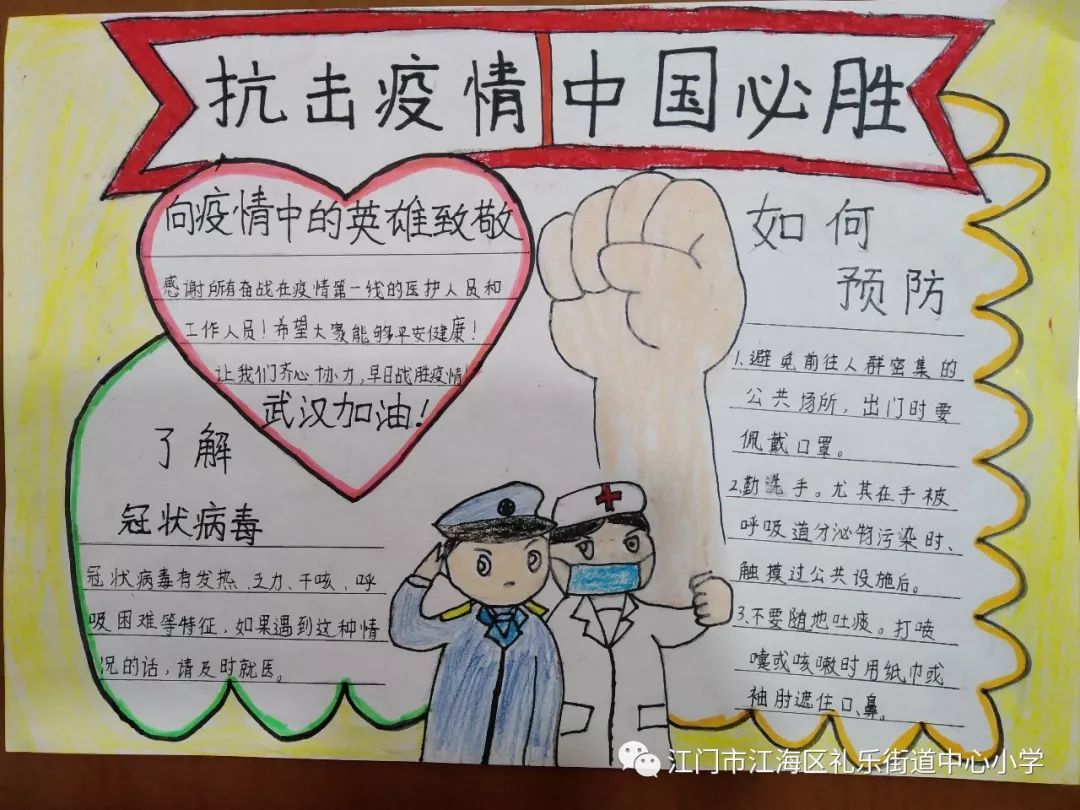 抗击疫情 中国必胜
向疫情中的英雄致敬
感谢所有奋战在疫情第一线的医护人员和
工作人员！希望大家能够平安健康！
让我们齐心协力，早日战胜疫情！
武汉加油！
了解
冠状病毒
冠状病毒有发热、乏力、干咳、呼
吸困难等特征，如果遇到这种情
况的话，请及时就医。
如何
预防
1.避免前往人群密集的
公共场所，出门时要
佩戴口罩。
2.勤洗手。尤其在手被
呼吸道分泌物污染时、
触摸过公共设施后。
3.不要随地吐痰。打喷
嚏或咳嗽时用纸巾或
袖肘遮住口、鼻。
江门市江海区礼乐街道中心小学